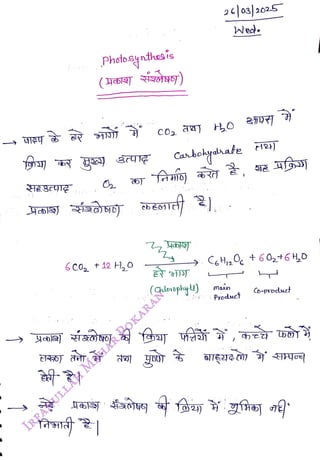 26/03/2025
Wed.
Photosynthesis
(प्रकाश संश्लेषण)
→ पादप के हरे भागों में CO₂ तथा H₂O आपस में
क्रिया कर मुख्य उत्पाद Carbohydrate तथा
सहउत्पाद O₂ का निर्माण करते है, यह प्रक्रिया
प्रकाश संश्लेषण कहलाती है।
प्रकाश
6CO₂ + 12H₂O → C₆H₁₂O₆ + 6O₂ + 6H₂O
हरे भाग
(Chlorophyll) main Product Co-product
→ प्रकाश संश्लेषण की क्रिया पत्तियों में, कच्चे फलों में,
तरुण तनो में तथा पुष्पों के बाह्यदलो में सम्पन्न
होती है।
→ जड़े प्रकाश संश्लेषण की क्रिया में भूमिका नहीं
निभाती है।